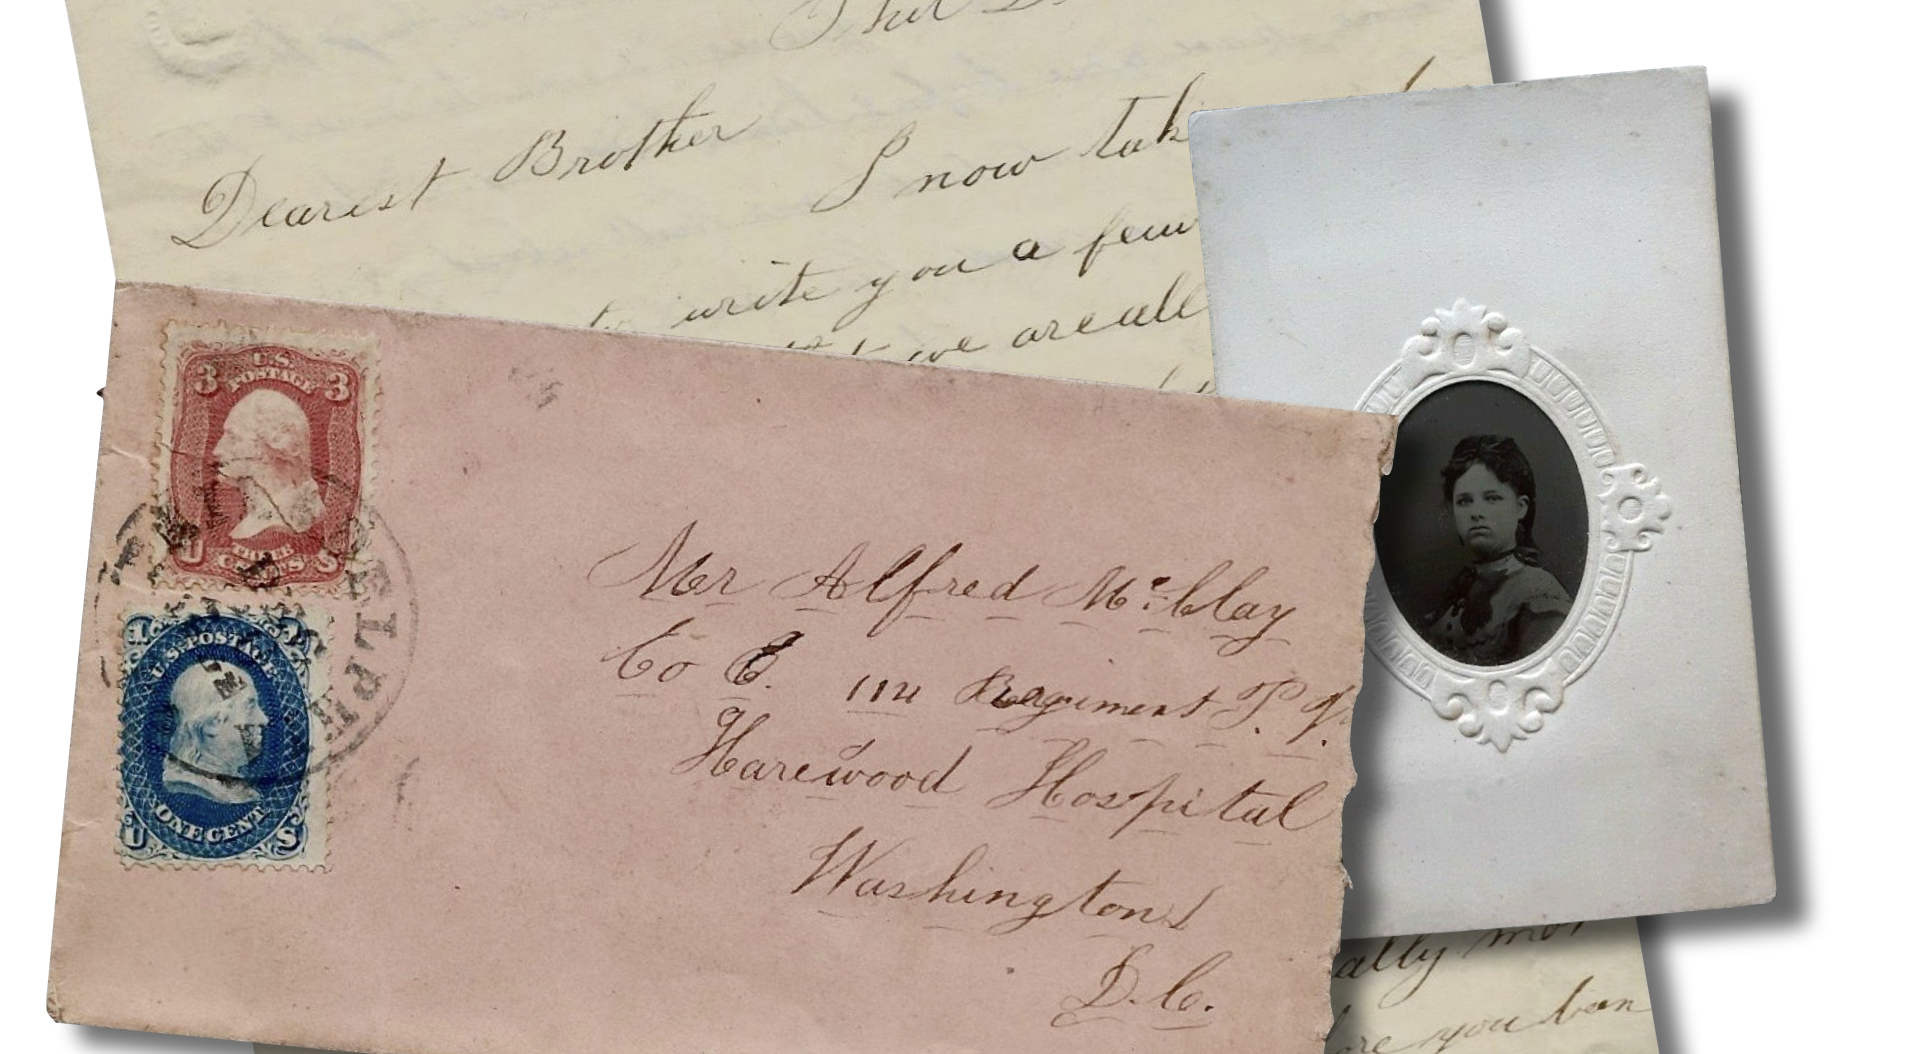 Phil
Dearest Brother
I now tak
to write you a few
we are all
U.S.
POSTAGE
3 3
U THREE S
CENTS
U.S. POSTAGE
ONE CENT
U S
Mr Alfred McClay
Co E. 114 Regiment P. V.
Harewood Hospital
Washington
D.C.
ally mor
you